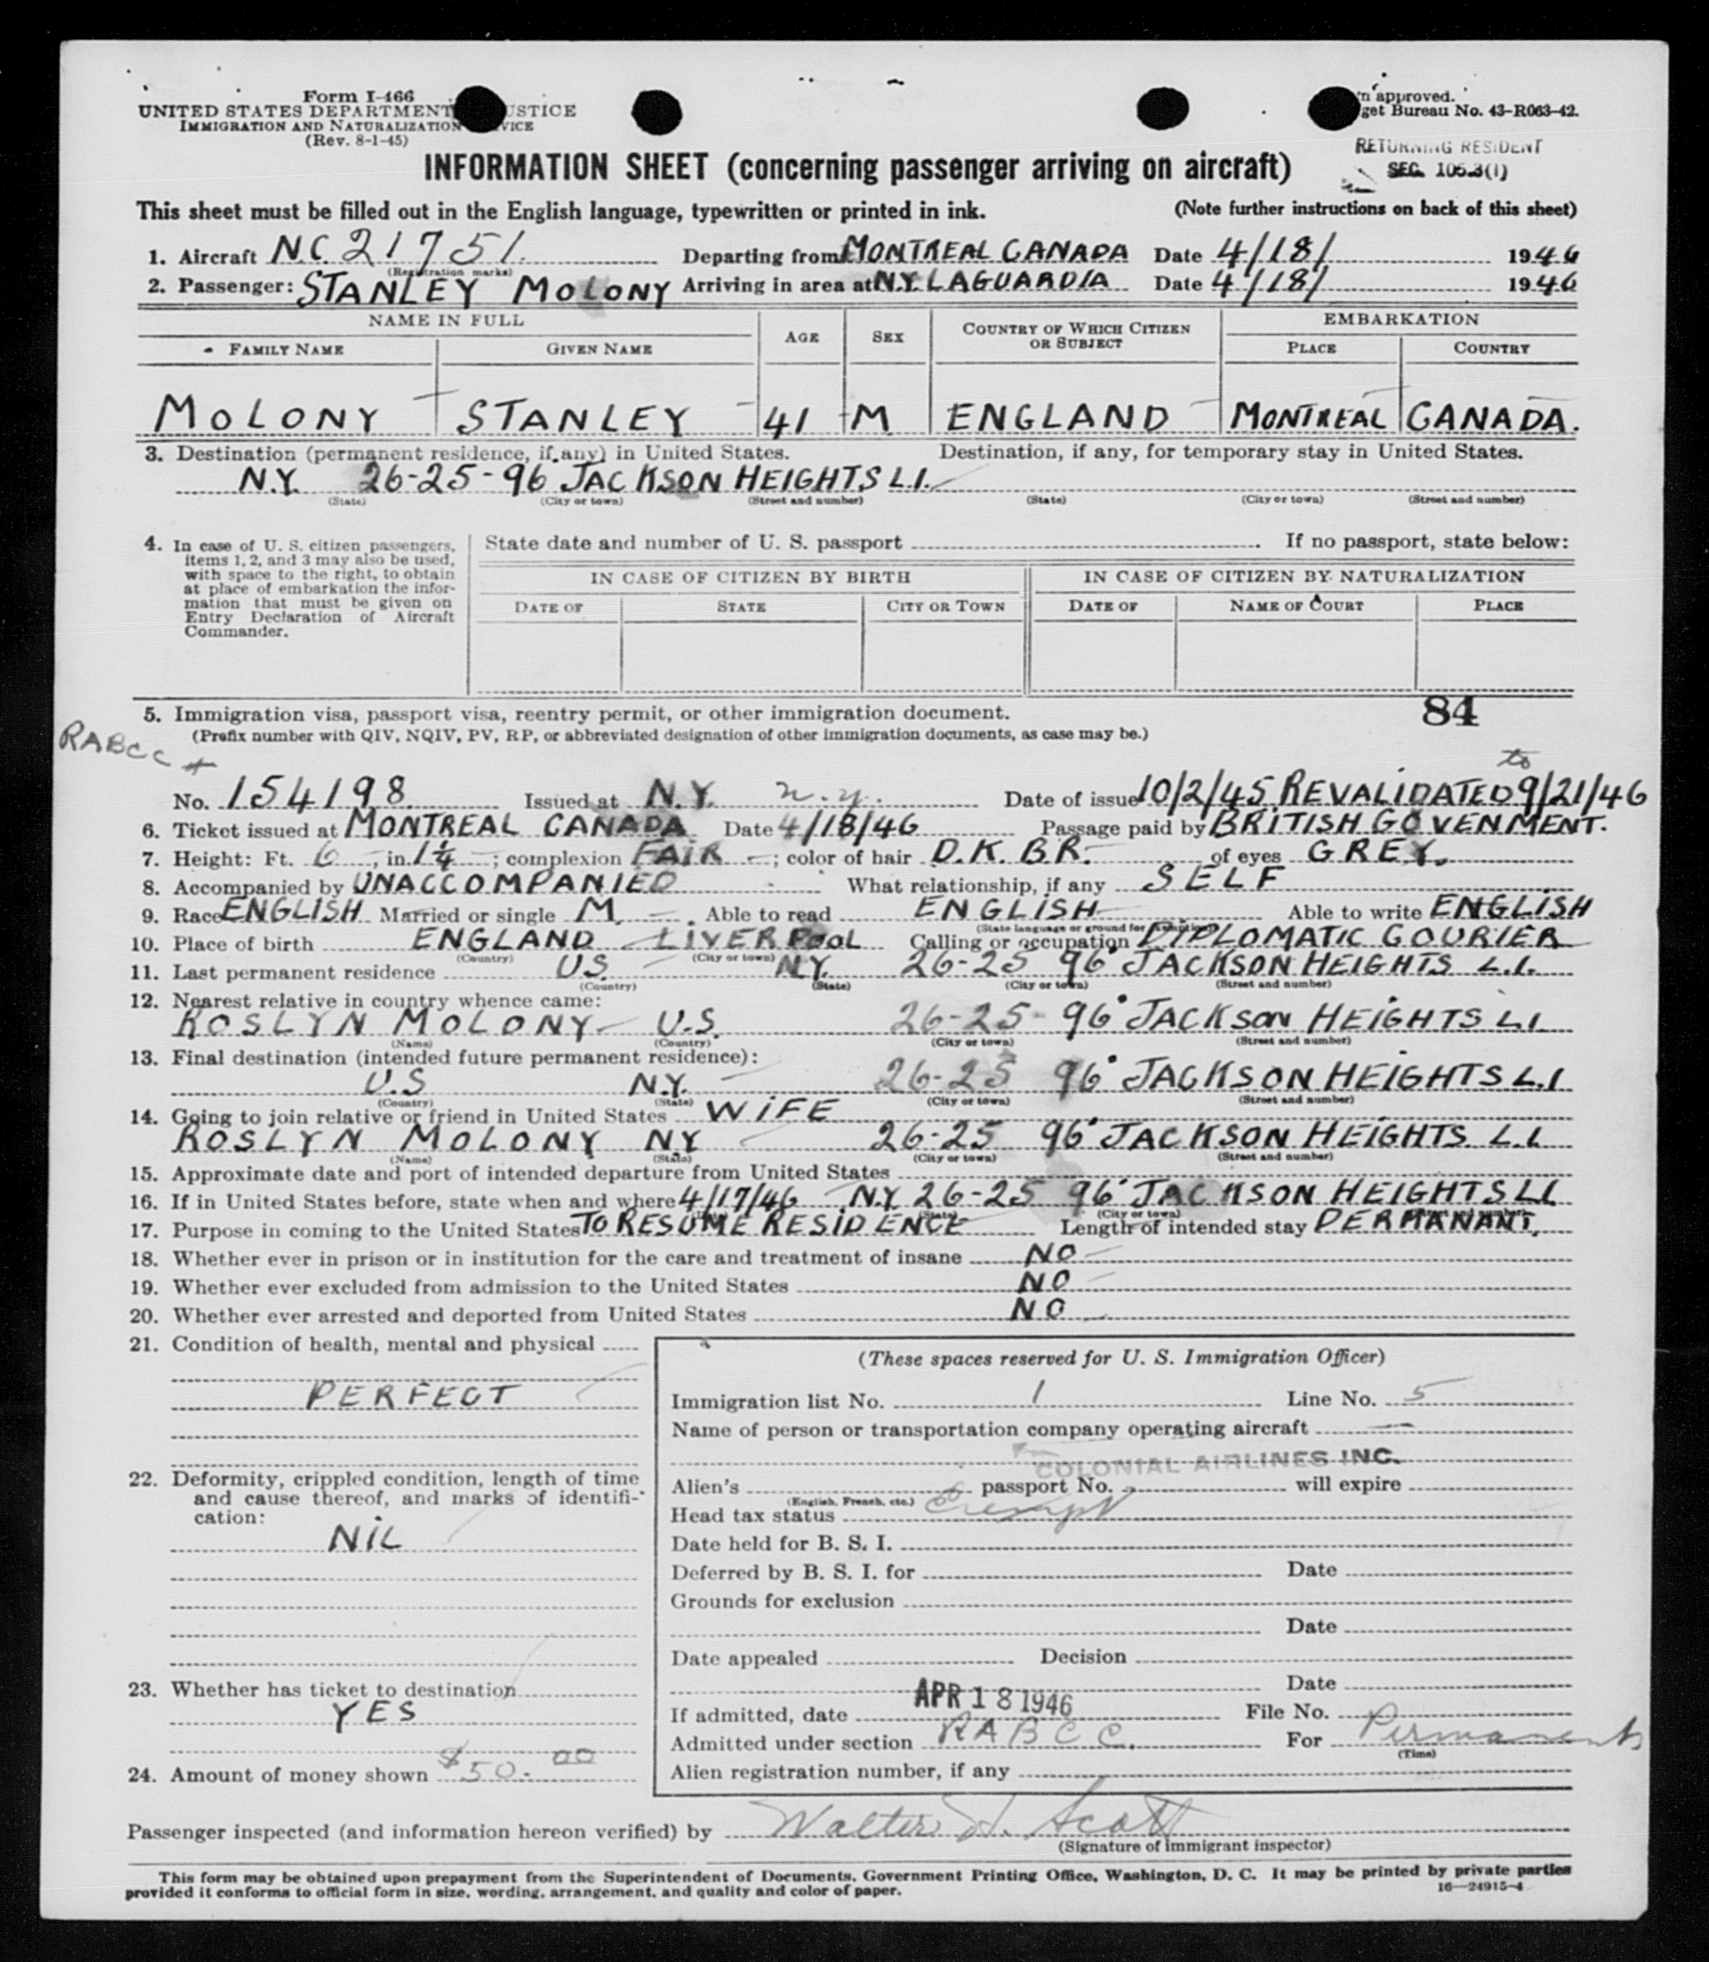 Form I-466
UNITED STATES DEPARTMENT USTICE
IMMIGRATION AND NATURALIZATION VICE
(Rev. 8-1-45)
'n approved.
get Bureau No. 43-R063-42.
RETURNING RESIDENT
SEC. 105.3(1)
INFORMATION SHEET (concerning passenger arriving on aircraft)
This sheet must be filled out in the English language, typewritten or printed in ink. (Note further instructions on back of this sheet)
1. Aircraft N.C. 21751. Departing from MONTREAL CANADA Date 4/18/ 1946
(Registration marks)
2. Passenger: STANLEY MOLONY Arriving in area at N.Y. LAGUARDIA Date 4/18/ 1946
NAME IN FULL AGE SEX COUNTRY OF WHICH CITIZEN OR SUBJECT EMBARKATION
FAMILY NAME GIVEN NAME PLACE COUNTRY
MOLONY STANLEY 41 M ENGLAND MONTREAL CANADA.
3. Destination (permanent residence, if any) in United States. Destination, if any, for temporary stay in United States.
N.Y. 26-25-96 JACKSON HEIGHTS L.I.
(State) (City or town) (Street and number) (State) (City or town) (Street and number)
4. In case of U. S. citizen passengers, items 1, 2, and 3 may also be used, with space to the right, to obtain at place of embarkation the information that must be given on Entry Declaration of Aircraft Commander.
State date and number of U. S. passport If no passport, state below:
IN CASE OF CITIZEN BY BIRTH IN CASE OF CITIZEN BY NATURALIZATION
DATE OF STATE CITY OR TOWN DATE OF NAME OF COURT PLACE
84
5. Immigration visa, passport visa, reentry permit, or other immigration document.
(Prefix number with QIV, NQIV, PV, RP, or abbreviated designation of other immigration documents, as case may be.)
RABCC
to
No. 154198 Issued at N.Y. n.y. Date of issue 10/2/45 REVALIDATED 9/21/46
6. Ticket issued at MONTREAL CANADA Date 4/18/46 Passage paid by BRITISH GOVENMENT.
7. Height: Ft. 6, in. 1¼; complexion FAIR; color of hair D.K. BR. of eyes GREY.
8. Accompanied by UNACCOMPANIED What relationship, if any SELF
9. Race ENGLISH Married or single M. Able to read ENGLISH Able to write ENGLISH
10. Place of birth ENGLAND LIVERPOOL Calling or occupation DIPLOMATIC COURIER
(Country) (City or town)
11. Last permanent residence US N.Y. 26-25 96 JACKSON HEIGHTS L.I.
(Country) (State) (City or town) (Street and number)
12. Nearest relative in country whence came:
ROSLYN MOLONY U.S. 26-25- 96 JACKSON HEIGHTS L.I
(Name) (Country) (City or town) (Street and number)
13. Final destination (intended future permanent residence):
U.S N.Y. 26-25 96 JACKSON HEIGHTS L.I
(Country) (State) (City or town) (Street and number)
14. Going to join relative or friend in United States WIFE
ROSLYN MOLONY NY 26-25 96 JACKSON HEIGHTS L.I
(Name) (State) (City or town) (Street and number)
15. Approximate date and port of intended departure from United States
16. If in United States before, state when and where 4/17/46 N.Y. 26-25 96 JACKSON HEIGHTS LI
(City or town)
17. Purpose in coming to the United States TO RESUME RESIDENCE Length of intended stay PERMANANT.
18. Whether ever in prison or in institution for the care and treatment of insane NO
19. Whether ever excluded from admission to the United States NO
20. Whether ever arrested and deported from United States NO
21. Condition of health, mental and physical
PERFECT
22. Deformity, crippled condition, length of time and cause thereof, and marks of identification:
NIL
23. Whether has ticket to destination
YES
24. Amount of money shown $50.00
(These spaces reserved for U. S. Immigration Officer)
Immigration list No. 1 Line No. 5
Name of person or transportation company operating aircraft
COLONIAL AIRLINES INC.
Alien's passport No. will expire
(English, French, etc.)
Head tax status Exempt
Date held for B. S. I.
Deferred by B. S. I. for Date
Grounds for exclusion
Date
Date appealed Decision
Date
If admitted, date APR 18 1946 File No.
Admitted under section RABCC. For Permanent
(Time)
Alien registration number, if any
Passenger inspected (and information hereon verified) by Walter H. Scott
(Signature of immigrant inspector)
This form may be obtained upon prepayment from the Superintendent of Documents, Government Printing Office, Washington, D. C. It may be printed by private parties
provided it conforms to official form in size, wording, arrangement, and quality and color of paper. 16—24915-4